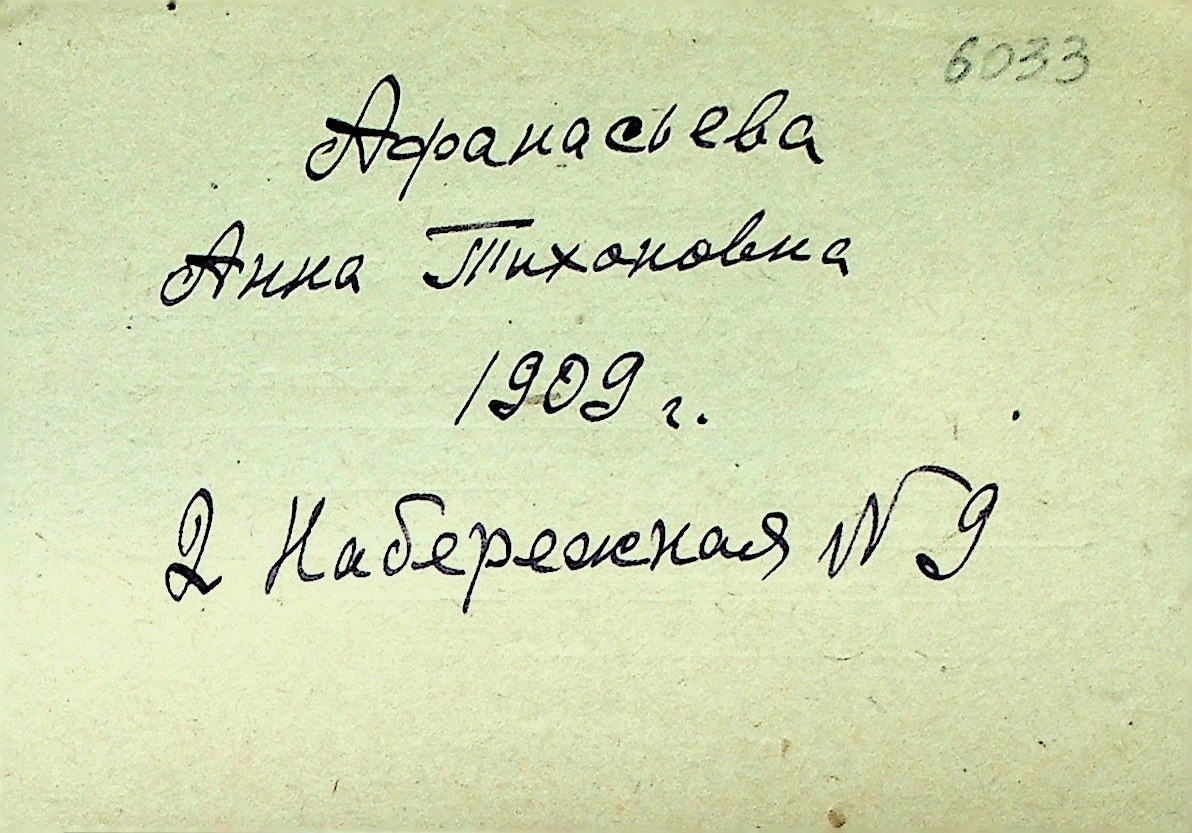 6033
Афанасьева
Анна Тихоновна
1909 г.
2 Набережная N 9